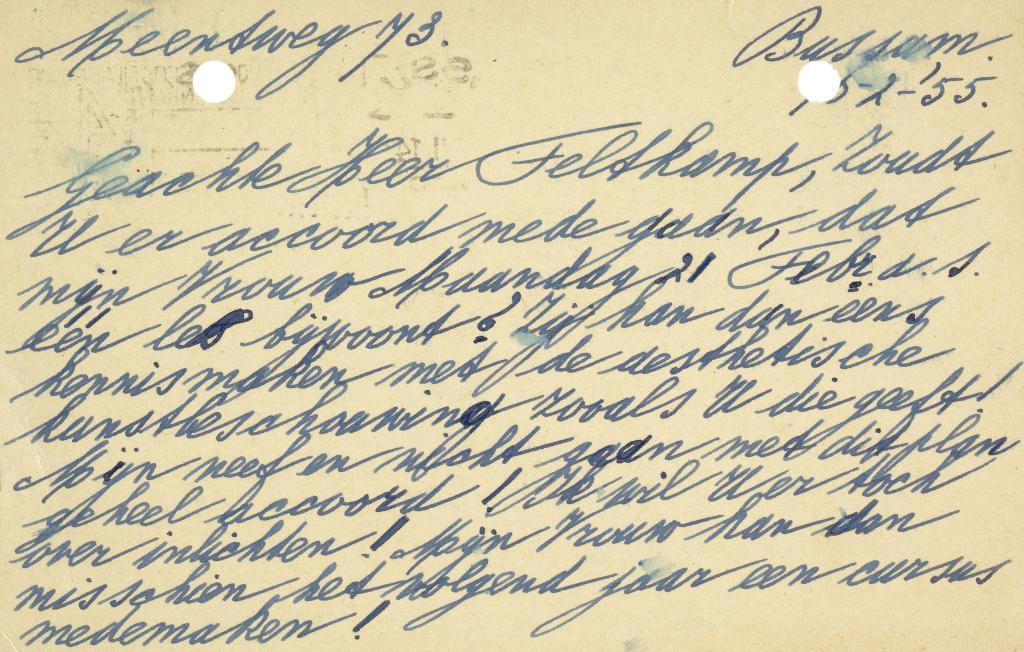 Meentweg 73. Bussum.
15-2-'55.
Geachte Heer Feltkamp, Zoudt
U er accoord mede gaan, dat
mijn Vrouw Maandag 21 Febr a.s.
één les bijwoont? Zij kan dan eens
kennismaken met de aesthetische
kunstbeschouwing zooals U die geeft!
Mijn neef en nicht gaan met dit plan
geheel accoord! Ik wil U er toch
over inlichten! Mijn Vrouw kan dan
misschien het volgend jaar een cursus
medemaken!